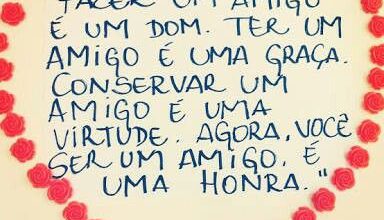 FAZER UM AMIGO
É UM DOM. TER UM
AMIGO É UMA GRAÇA.
CONSERVAR UM
AMIGO É UMA
VIRTUDE. AGORA, VOCÊ
SER UM AMIGO, É
UMA HONRA."